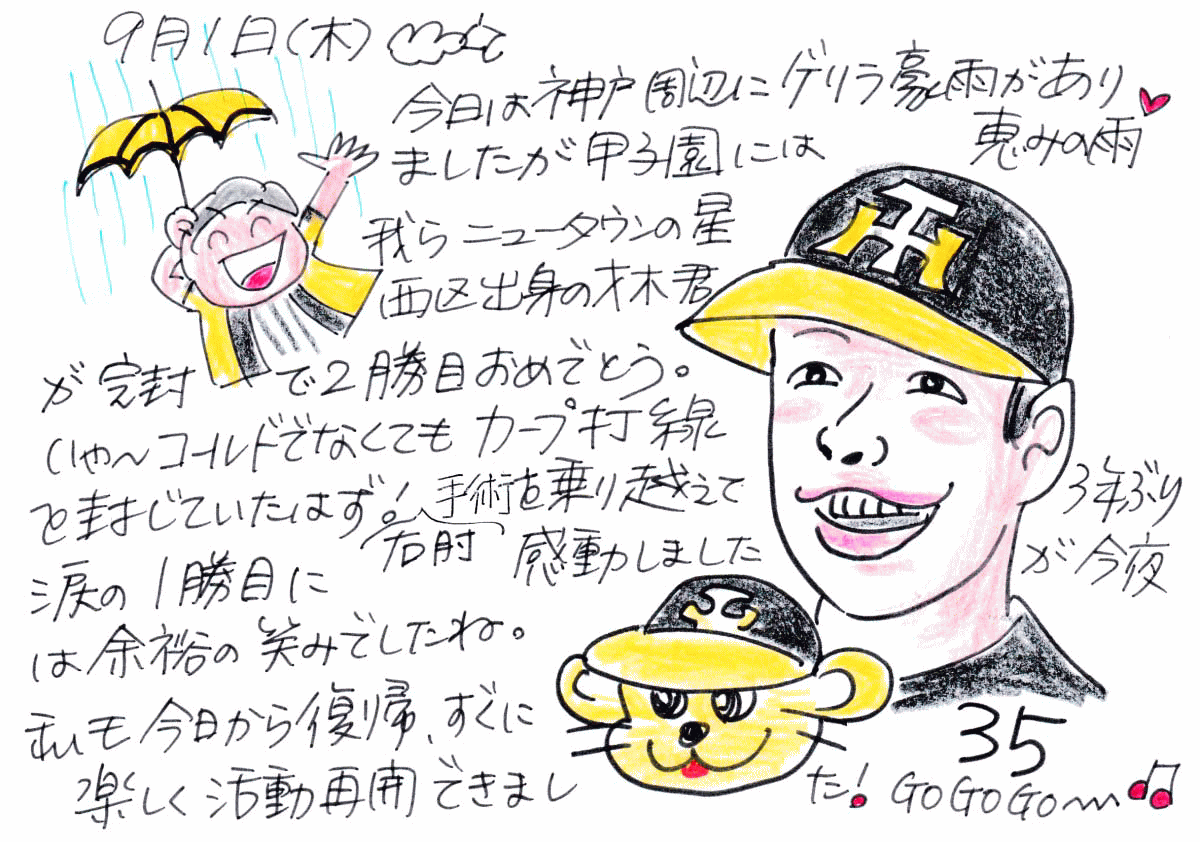 9月1日(木)
今日は神戸周辺にゲリラ豪雨があり
ましたが甲子園には 恵みの雨
我らニュータウンの星
西区出身の才木君
が完封 で2勝目おめでとう。
いや〜コールドでなくてもカープ打線
を封じていたはず!
右肘 手術を乗り越えて
3年ぶり
涙の1勝目に 感動しました
が今夜
は余裕の笑みでしたね。
私モ今日から復帰、すぐに
35
楽しく活動再開できました! GOGOGO〜